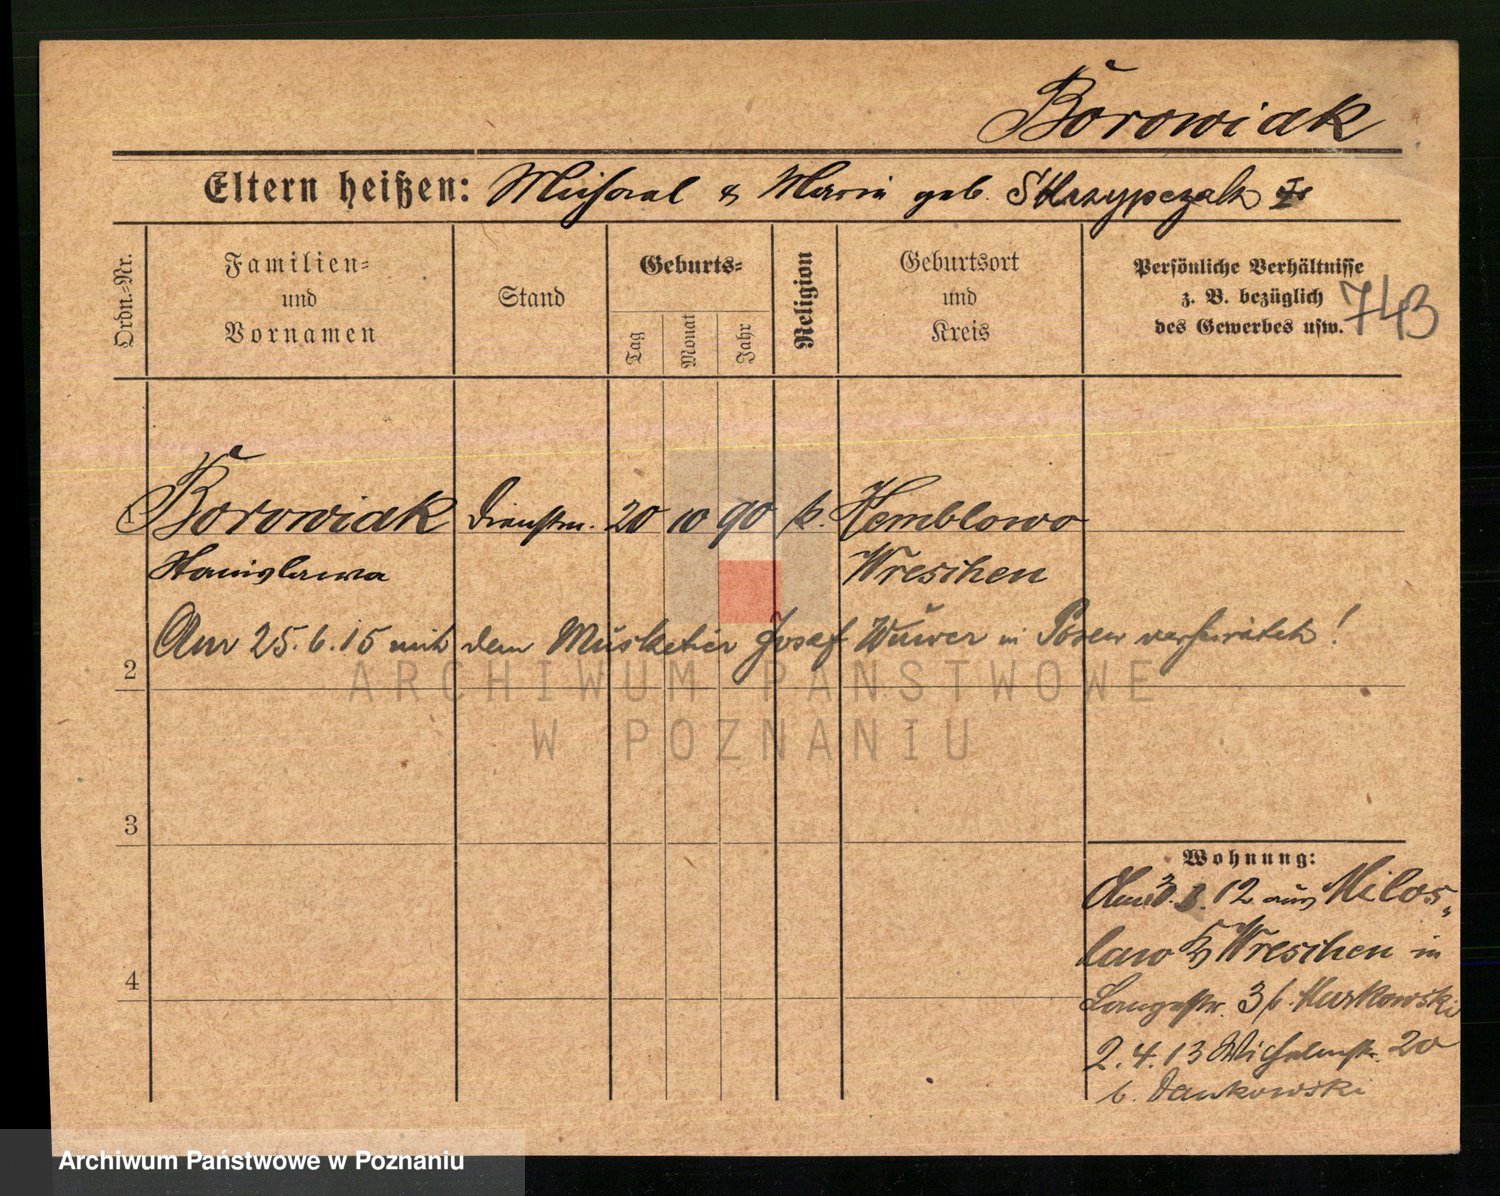 Borowiak
Eltern heißen: Michael & Maria geb. Skrzypczak
Ordn.-Nr.
Familien-
und
Vornamen
Stand
Geburts-
Tag
Monat
Jahr
Religion
Geburtsort
und
Kreis
Persönliche Verhältnisse
z. B. bezüglich
des Gewerbes usw.
743
1 Borowiak Dienstm. 20 10 90 k. Hemblowo
Stanislawa Wreschen
Am 25.6.15 mit dem Musketier Josef Wuwer in Posen verheiratet!
2
3
4
Wohnung:
Am 3. 12 aus Milos-
law Kr Wreschen in
Langestr. 3 b. Murkowski
2.4.13 Wilhelmstr. 20
b. Dankowski
ARCHIWUM PAŃSTWOWE
W POZNANIU
Archiwum Państwowe w Poznaniu